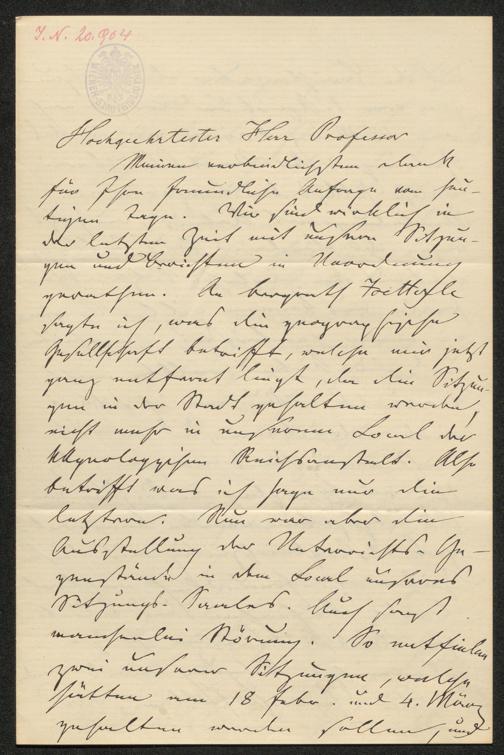 I. N. 20.904
Hochgeehrtester Herr Professor
Meinen verbindlichsten Dank
für Ihre freundliche Anfrage vom heu-
tigen Tage. Wir sind wirklich in
der letzten Zeit mit unseren Sitzun-
gen und Berichten in Unordnung
gerathen. An Bergrath Foetterle
sagte ich, was die geographische
Gesellschaft betrifft, welche mir jetzt
ganz entfernt liegt, da die Sitzun-
gen in der Stadt gehalten werden,
nicht mehr in unserem Local der
k k geologischen Reichsanstalt. Also
betrifft was ich sage nur die
letztere. Nun war aber die
Ausstellung der Unterrichts-Ge-
genstände in dem Local unseres
Sitzungs-Saales. Auch sonst
mancherlei Störung. So entfielen
zwei unserer Sitzungen, welche
hätten am 18 Febr. und 4. März
gehalten werden sollen, und